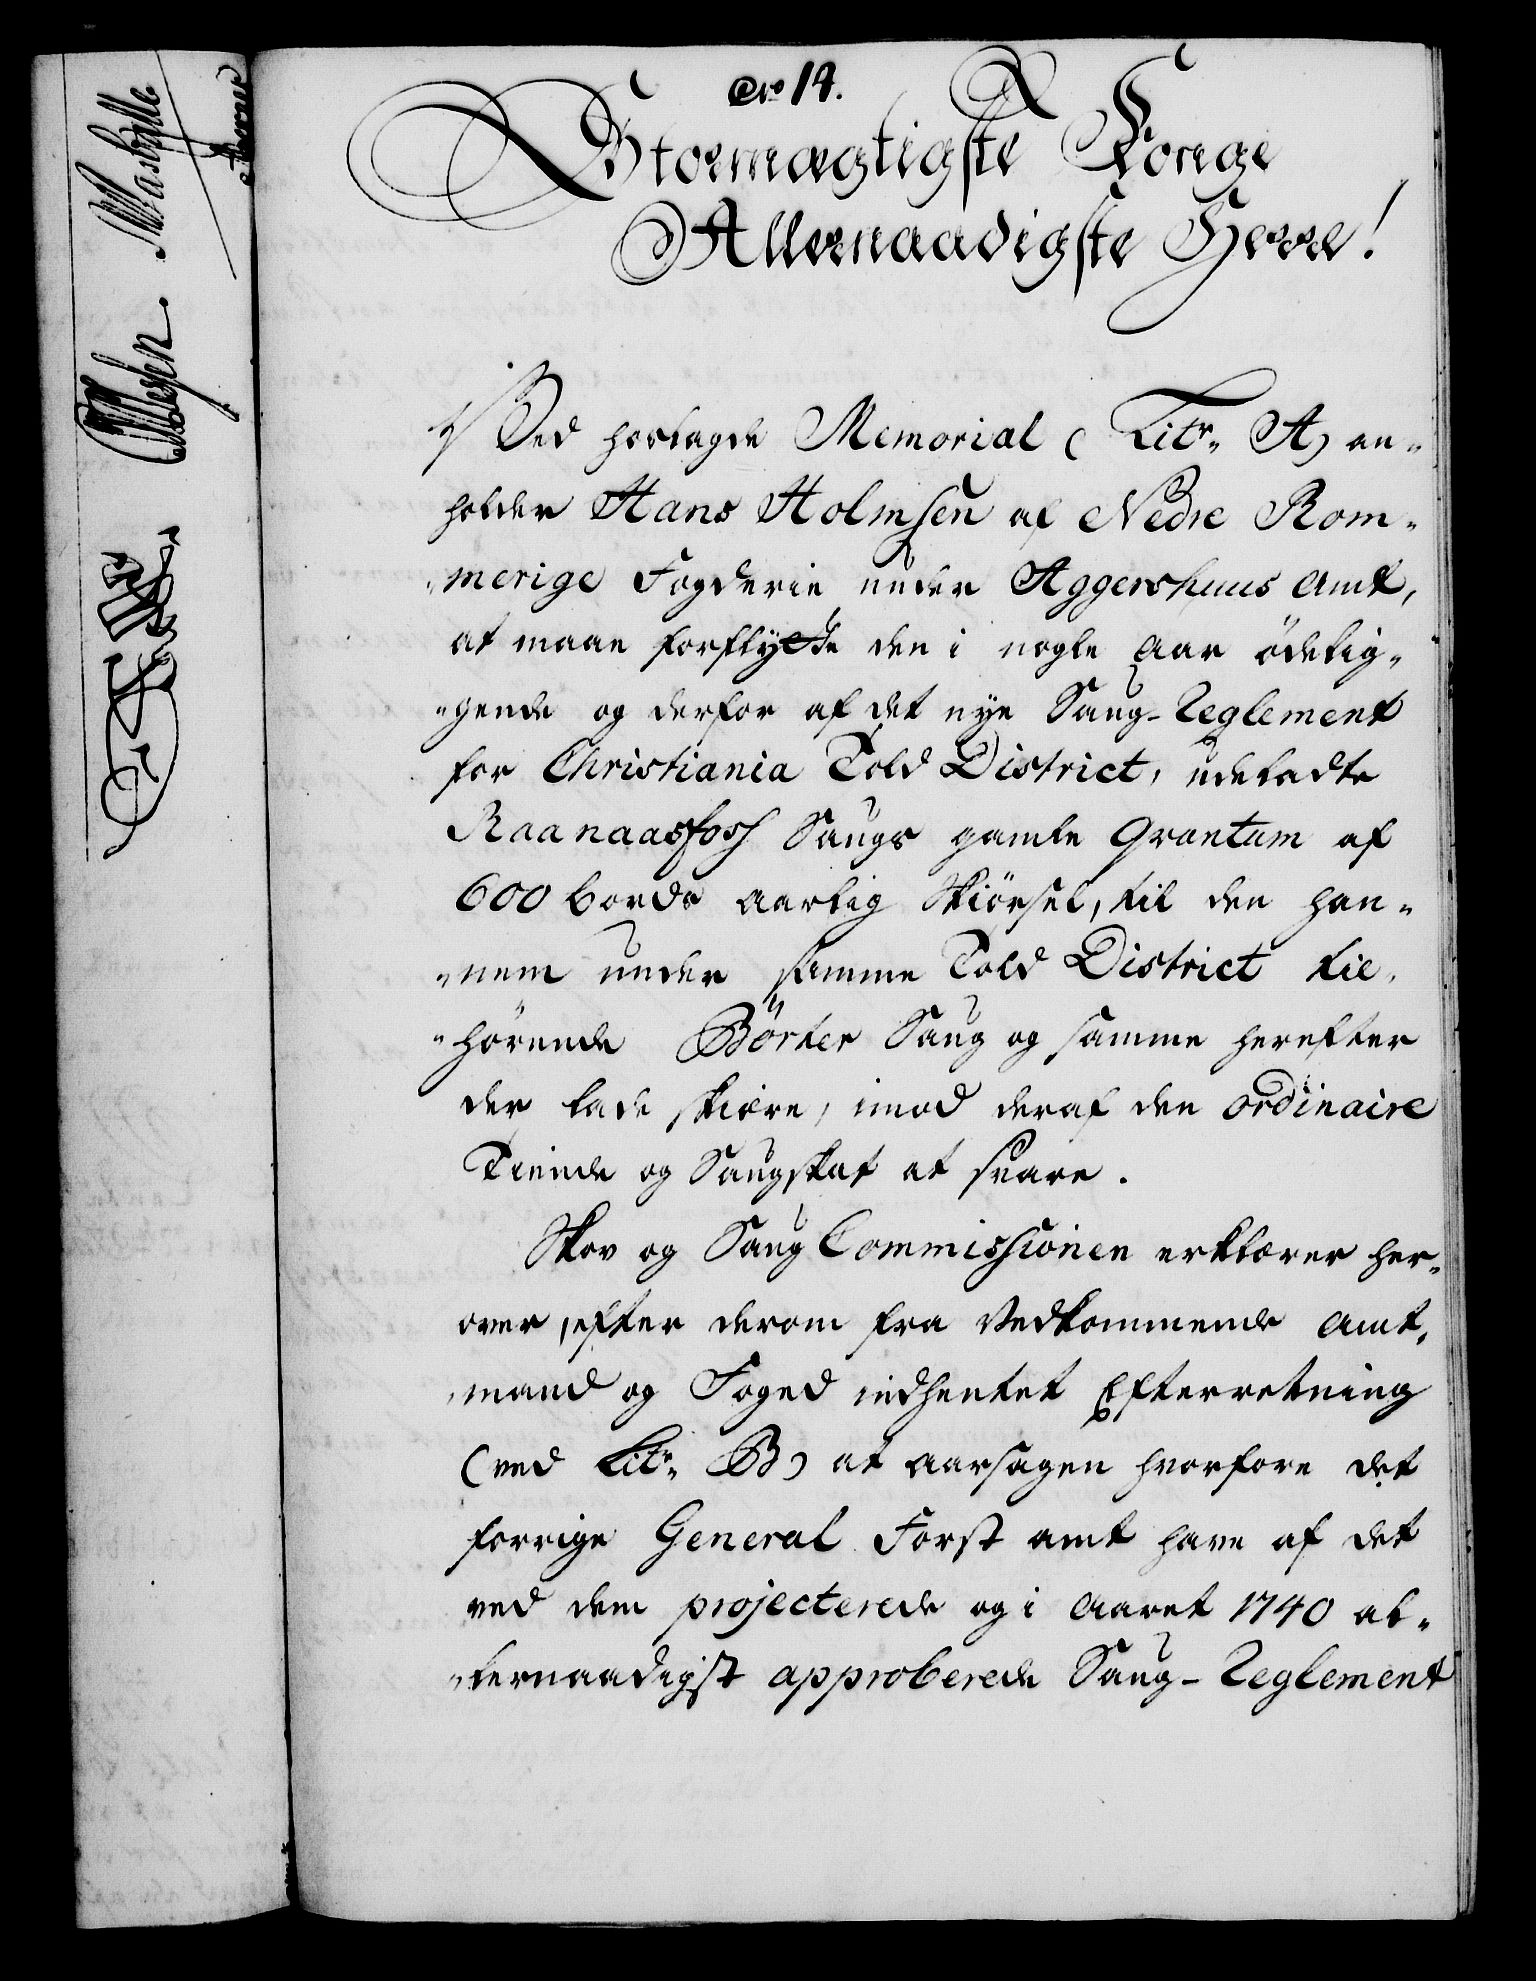 No 14.
Stormægtigste Konge
Allernaadigste Herre!
Ved hoslagde Memorial (Litr. A) an-
holder Hans Holmsen af Nedre Rom-
merige Fogderie under Aggershuus Amt,
at maae forflytte den i nogle Aar ödelig-
gende og derfor af det nye Saug-Reglement
for Christiania Told District, udeladte
Raanaasfoss Saugs gamle Qvantum af
600 bords aarlig Skiörsel, til den han-
nem under samme Told District til-
hörende Börter Saug og samme herefter
der lade skiære, imod deraf den ordinaire
Tiende og Saugskat at svare.
Skov og Saug Commissionen erklærer her-
over, efter derom fra Vedkommende Amt-
mand og Foged indhentet Efterretning
(ved Litr. B) at aarsagen hvorfore det
forrige General Forst amt have af det
ved dem projecterede og i Aaret 1740 al-
lernaadigst approberede Saug-Reglement